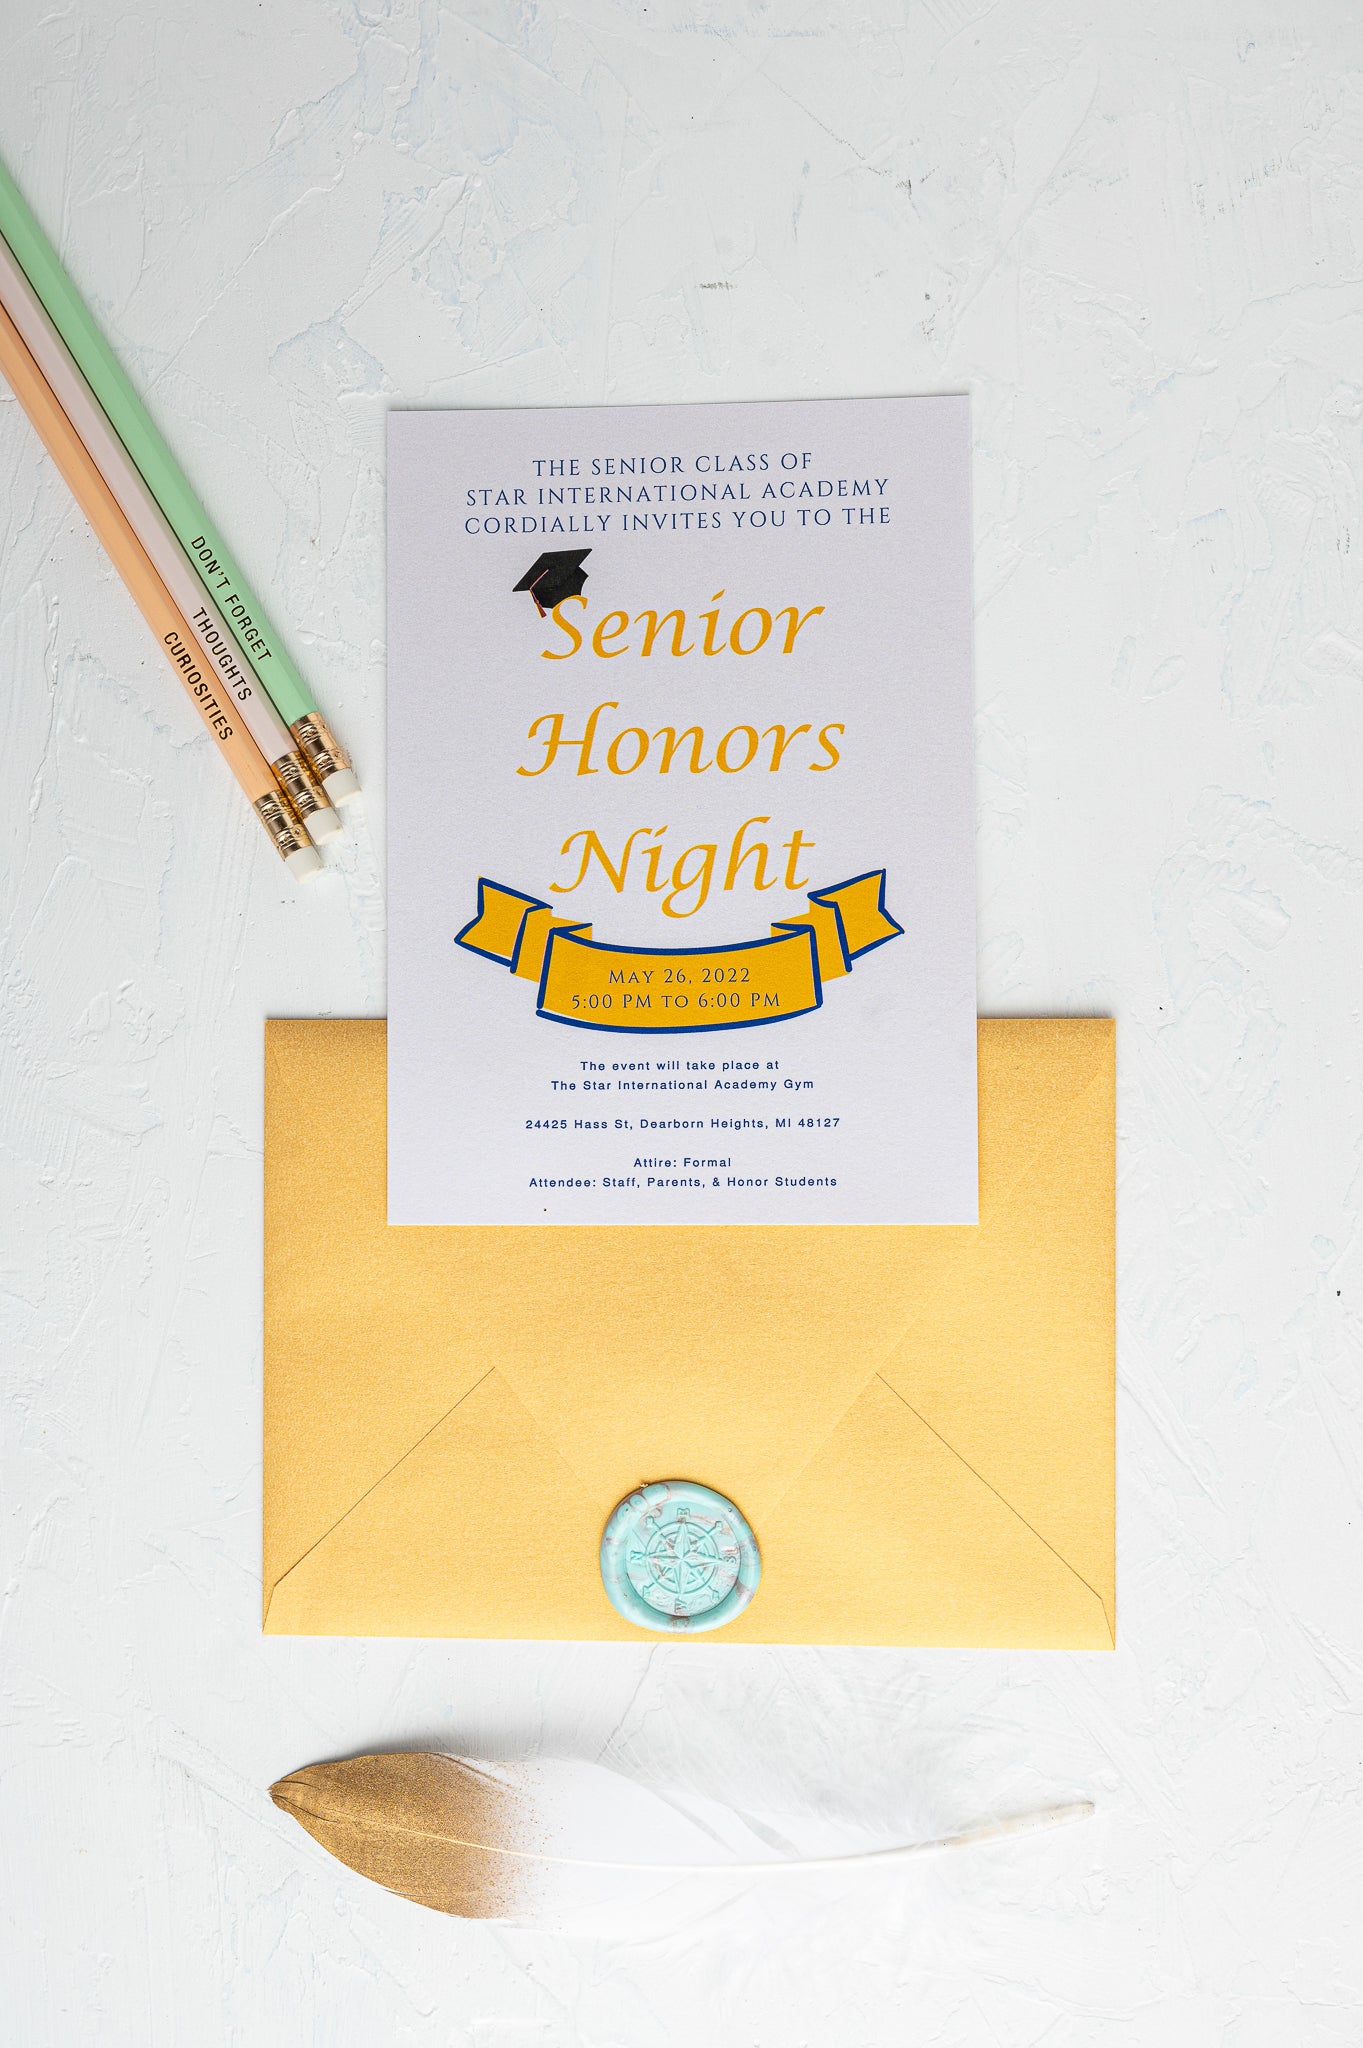 THE SENIOR CLASS OF
STAR INTERNATIONAL ACADEMY
CORDIALLY INVITES YOU TO THE
Senior
Honors
Night
MAY 26, 2022
5:00 PM TO 6:00 PM
The event will take place at
The Star International Academy Gym
24425 Hass St, Dearborn Heights, MI 48127
Attire: Formal
Attendee: Staff, Parents, & Honor Students
DON'T FORGET
THOUGHTS
CURIOSITIES